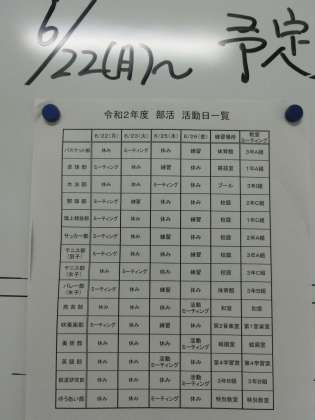 6/22(月)〜 予定
令和2年度 部活 活動日一覧
6/22(月) 6/23(火) 6/25(木) 6/26(金) 練習場所 教室ミーティング
バスケット部 休み ミーティング 休み 練習 体育館 3年A組
ミーティング 休み 練習 休み 1年A組
水泳部 休み 休み ミーティング 休み プール
ミーティング 練習 休み 休み 校庭 2年C組
陸上競技部 ミーティング 休み 休み 練習 校庭 1年C組
サッカー部 ミーティング 休み 練習 休み 校庭 2年A組
テニス部(男子) ミーティング 休み 休み 練習 校庭
テニス部(女子) 休み ミーティング 休み 練習 校庭 3年C組
バレー部(女子) ミーティング 休み 練習 休み 体育館 3年B組
休み 休み 休み 活動ミーティング 和室 和室
吹奏楽部 ミーティング 休み 練習 休み 第2音楽室 第1音楽室
美術部 休み 休み 休み 活動ミーティング
英語部 休み 休み 活動ミーティング 休み 第4学習室 第4学習室
鉄道研究部 休み 活動ミーティング 休み 休み 3年B組 3年B組
ゆうあい部 休み 休み 休み 活動ミーティング 特別教室 特別教室